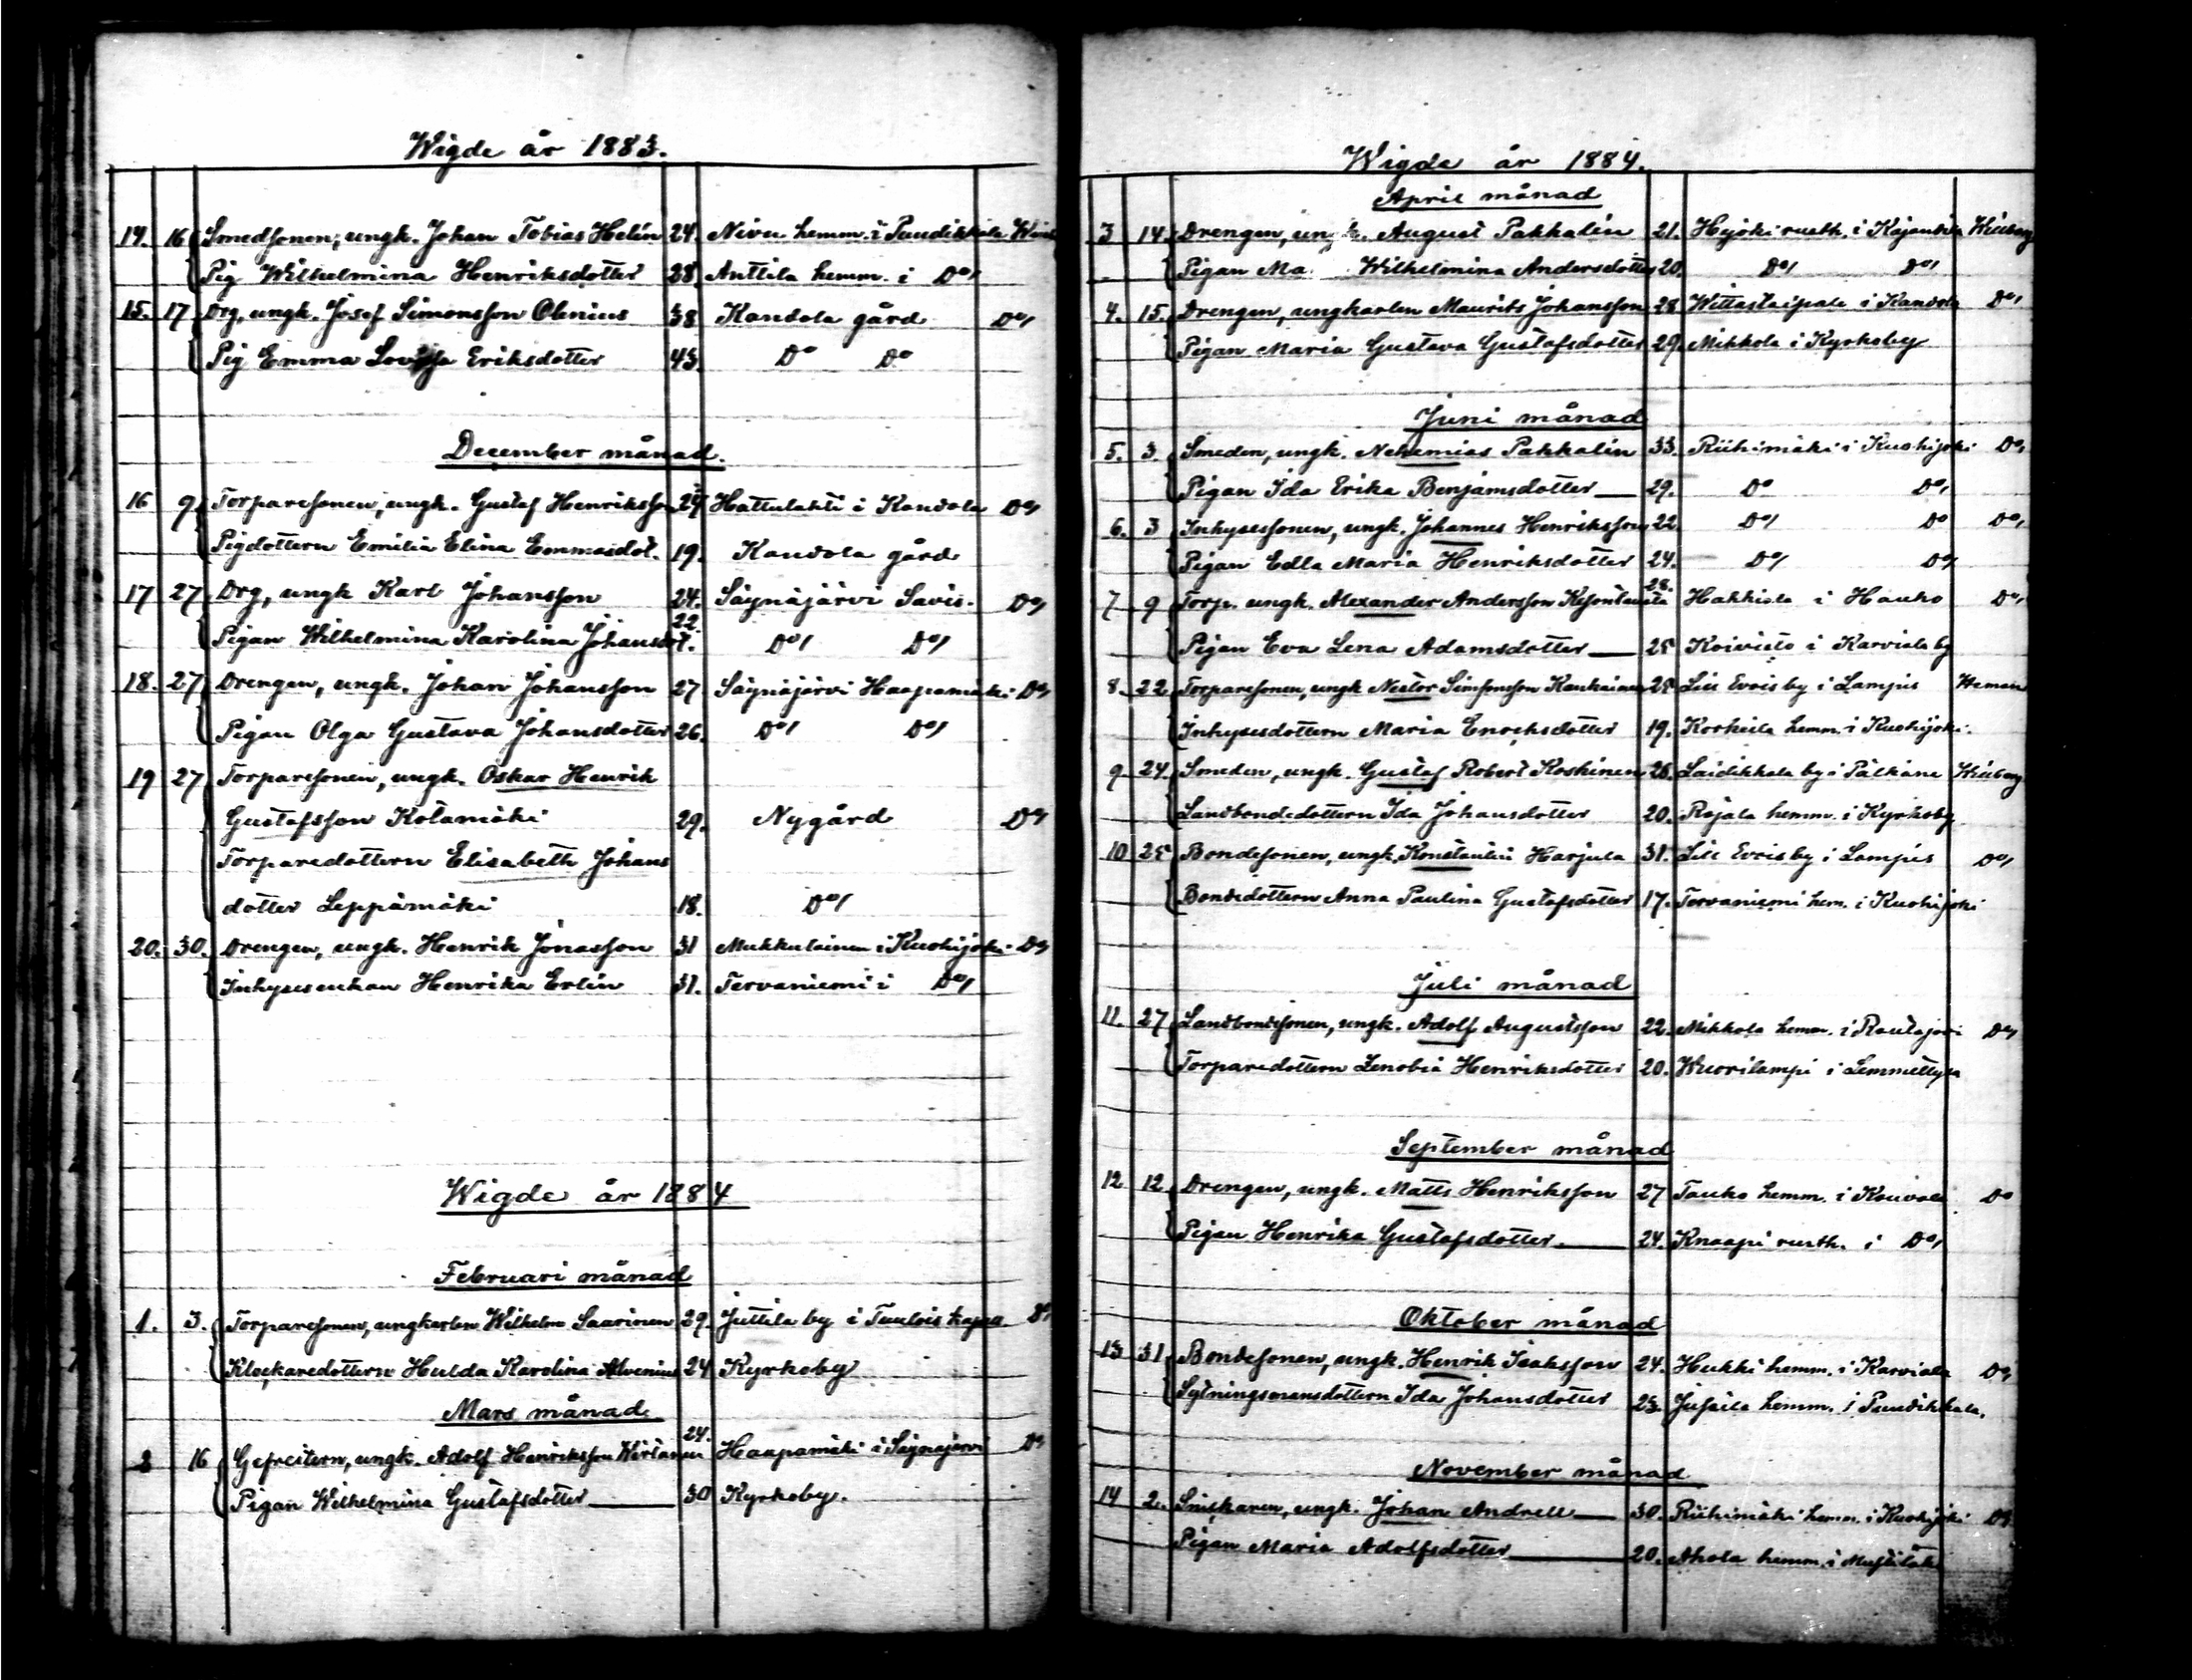 Wigde år 1883.
14. 16 Smedsonen, ungk. Johan Tobias Helin 24. Nivu hemm. i Puudikkala
Pig Wilhelmina Henriksdotter 28. Anttila hemm. i Do,
15. 17 Drg, ungk. Josef Simonsson Olenius 38 Kandola gård Do,
Pig Emma Lovisa Eriksdotter 43. Do Do
December månad.
16 9. Torparesonen, ungk. Gustaf Henriksson 24 Hattulahti i Kandola Do,
Pigdottern Emilia Elina Emmasdot. 19. Kandola gård
17 27 Drg, ungk Karl Johansson 24. Säynäjärvi Savis. Do,
Pigan Wilhelmina Karolina Johansdot. 22. Do, Do,
18. 27 Drengen, ungk. Johan Johansson 27 Säynäjärvi Haapamäki Do,
Pigan Olga Gustava Johansdotter 26. Do, Do,
19 27 Torparesonen, ungk. Oskar Henrik
Gustafsson Kotamäki 29. Nygård Do,
Torparedottern Elisabeth Johans
dotter Leppämäki 18. Do,
20. 30. Drengen, ungk. Henrik Jonasson 31 Mukkulainen i Kuohijoki Do,
Inhysesenkan Henrika Erlin 31. Tervaniemi i Do,
Wigde år 1884
Februari månad
1. 3. Torparesonen, ungkarlen Wilhelm Saarinen 29. Juttila by i Tuulois kapell Do
Klockaredottern Hulda Karolina Alvenius 24 Kyrkoby
Mars månad.
2 16 Gefreitern, ungk. Adolf Henriksson Wirtanen 24. Haapamäki i Säynäjärvi Do,
Pigan Wilhelmina Gustafsdotter 30 Kyrkoby.
Wigde år 1884.
April månad
3 14. Drengen, ungk. August Pakkalin 21. Hyöki rusth. i
Pigan Wilhelmina Andersdotter 20. Do, Do,
4. 15. Drengen, ungkarlen Maurits Johansson 28 Wittastaipale i Kandola Do,
Pigan Maria Gustava Gustafsdotter 29. Mikkola i Kyrkoby
Juni månad
5. 3. Smeden, ungk. Nehemias Pakkalin 33. Riihimäki i Kuohijoki Do,
Pigan Ida Erika Benjamsdotter 29. Do Do,
6. 3 Inhysessonen, ungk. Johannes Henriksson 22. Do, Do Do,
Pigan Edla Maria Henriksdotter 24. Do, Do,
7 9 Torp. ungk. Alexander Andersson 28. Hakkila i Hauho Do,
Pigan Eva Lena Adamsdotter 25 Koivisto i Karviala by
8. 22. Torparesonen, ungk Nestor Simonsson 25 Lill Evois by i Lampis
Inhysesdottern Maria Enochsdotter 19. Korkeila hemm. i Kuohijoki.
9 24. Smeden, ungk. Gustaf Robert Koskinen 26. Laidikkala by i Pälkäne
Landbondedottern Ida Johansdotter 20. Rajala hemm. i Kyrkoby
10 25 Bondesonen, ungk. Konstantin Harjula 31. Lill Evois by i Lampis Do,
Bondedottern Anna Paulina Gustafsdotter 17. Tervaniemi hem. i Kuohijoki
Juli månad
11. 27 Landbondesonen, ungk. Adolf Augustsson 22. Mikkola hemm. i Rautajärvi Do,
Torparedottern Zenobia Henriksdotter 20. Wuorilampi i Lemmettylä
September månad
12 12 Drengen, ungk. Matts Henriksson 27 Tauko hemm. i Kouvala Do
Pigan Henrika Gustafsdotter. 24. Knaapi rusth. i Do,
Oktober månad
13 31 Bondesonen, ungk. Henrik Isaksson 24. Hukki hemm. i Karviala Do,
Sytningsmansdottern Ida Johansdotter 23. Jussila hemm. i Puudikkala.
November månad
14 2. Snickaren, ungk. Johan Andrell 30. Riihimäki hemm. i Kuohijoki Do,
Pigan Maria Adolfsdotter 20. Ahola hemm. i